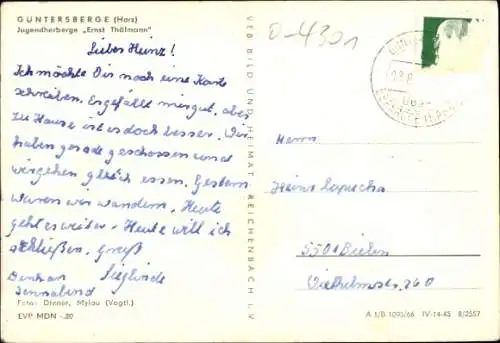 GÜNTERSBERGE (Harz)
Jugendherberge „Ernst Thälmann"
0-4301
Lieber Heinz!
Ich möchte Dir noch eine Karte
schreiben. Es gefällt mir gut, aber
zu Hause ist es doch besser. Wir
haben gerade geschossen und
wir gehen gleich essen. Gestern
waren wir wandern. Heute
geht es weiter. Heute will ich
schließen. Gruß
Sieglinde
Sonnabend
Foto: Dinner, Mylau (Vogtl.)
EVP MDN -.20
VEB BILD UND HEIMAT REICHENBACH i. V.
Herrn
Heinz
5501 Bielen
Wilhelmstr. 260
A 1/B 1095/66 IV-14-45 8/2557